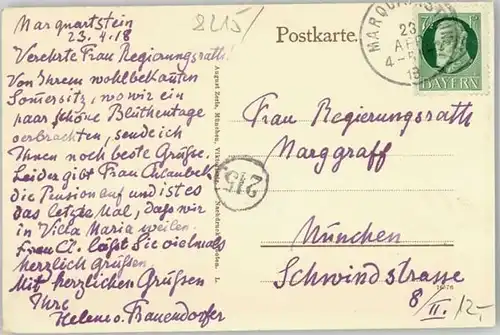 Marquartstein
23.4.18
2215
Verehrte Frau Regierungsrath!
Von Ihrem wohlbekannten
Somersitz, wo wir ein
paar schöne Blüthentage
verbrachten, sende ich
Ihnen noch beste Grüße.
Leider gibt Frau
die Pension auf und ist es
das letzte Mal, daß wir
in Villa Maria weilen.
Frau Cl. läßt Sie vielmals
herzlich grüßen.
Mit herzlichen Grüßen
Ihre
Helene v. Frauendorfer
August Zerle, München, Nachdruck verboten. L.
Postkarte.
MARQUARTST
23
APR
4-5
18
7½ Pf
BAYERN
215
Frau Regierungsrath
Marggraff
München
Schwindstrasse
8/II.
12.-